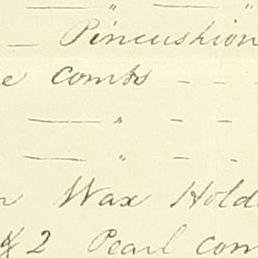 — " — "
— Pincushion
e combs - - -
— " - -
— " - -
Wax Hold
& 2 Pearl com